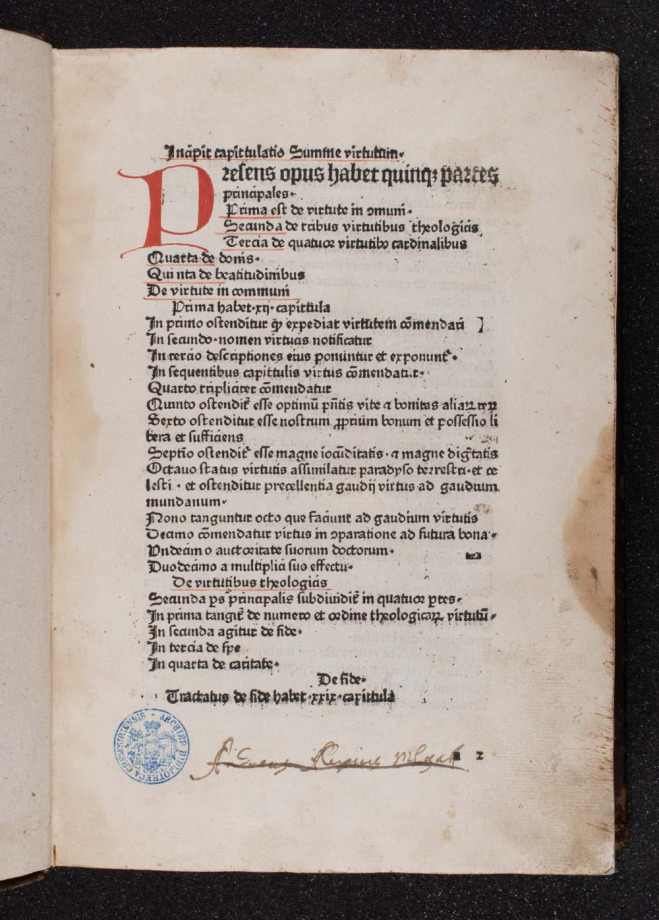 Incipit capittulatio Summe virtutum·
Presens opus habet quinqꝫ partes
principales·
Prima est de virtute in ↄmuni·
Secunda de tribus virtutibus theologicis
Tercia de quatuor virtutibꝫ cardinalibus
Quarta de donis·
Quinta de beatitudinibus
De virtute in communi
Prima habet·xij·capittula
In primo ostenditur ꝙ expediat virtutem cōmendari
In secundo·nomen virtutis notificatur
In tercio descriptiones eius ponuntur et exponunt᷑·
In sequentibus capittulis virtus cōmendatur·
Quarto tripliciter cōmendatur
Quinto ostendit᷑ esse optimū pn̄tis vite ⁊ bonitas aliaꝝ
Sexto ostenditur esse nostrum ꝓprium bonum et possessio li
bera et sufficiens
Septīo ostendit᷑ esse magne iocūditatis·⁊ magne dignitatis
Octauo status virtutis assimilatur paradyso terrestri·et ce
lesti·et ostenditur precellentia gaudij virtus ad gaudium
mundanum·
Nono tanguntur octo que faciunt ad gaudium virtutis
Decimo cōmendatur virtus in ↄparatione ad futura bona·
Vndecimo auctoritate suorum doctorum·
Duodecimo a multiplici suo effectu·
De virtutibus theologicis
Secunda ps principalis subdiuidit᷑ in quatuor ptes·
In prima tangit᷑ de numero et ordine theologicaꝝ virtutū·
In secunda agitur de fide·
In tercia de spe
In quarta de caritate·
De fide·
Tractatus de fide habet·xxix·capittula